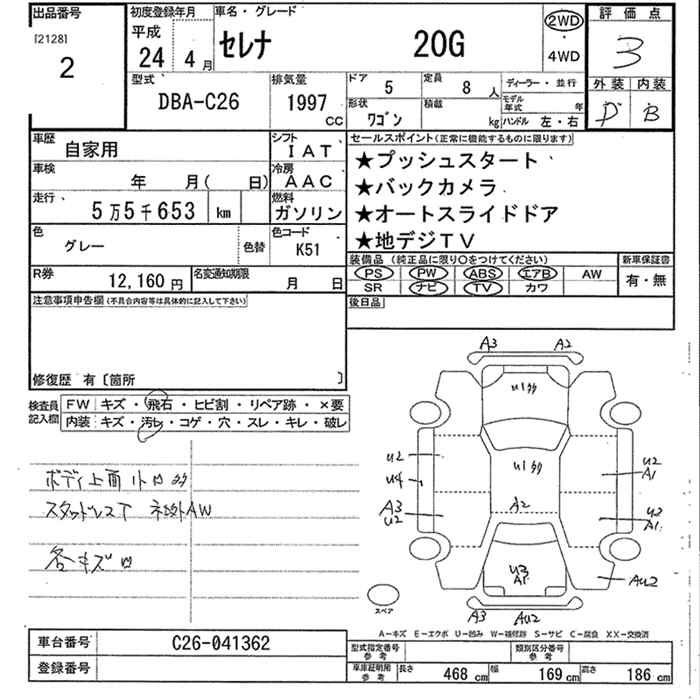 出品番号 初度登録年月 車名・グレード 評価点
[2128] 平成 2WD
2 24 4月 セレナ 20G ・ 3
4WD
型式 排気量 ドア 5 定員 8人 ディーラー・並行 外装 内装
DBA-C26 1997cc 形状 ワゴン 積載 kg モデル年式 年 D B
ハンドル 左・右
車歴 自家用 シフト IAT セールスポイント(正常に機能するものに限ります)
車検 年 月( 日) 冷房 AAC ★プッシュスタート
走行 5万5千653 km 燃料 ガソリン ★バックカメラ
★オートスライドドア
色 グレー 色替 色コード K51 ★地デジTV
装備品(純正品に限り○をつけてください) 新車保証書
R券 12,160円 名変通知期限 月 日 PS PW ABS エアB AW 有・無
SR ナビ TV カワ
注意事項申告欄(不具合内容等は具体的に記入して下さい) 後日品
修復歴 有〔箇所 〕
検査員記入欄 FW キズ・飛石・ヒビ割・リペア跡・×要
内装 キズ・汚レ・コゲ・穴・スレ・キレ・破レ
A3 A2
U1
U2 U1 U2
U4 A1
A3 A2 U2
U2 A1
U3
A1 AU2
A3 AU2
ボディ上面
スタッドレス AW
各キズ
スペア
A-キズ E-エクボ U-凹み W-補修跡 S-サビ C-腐食 XX-交換済
車台番号 C26-041362 型式指定番号 参考 類別区分番号 参考
登録番号 車庫証明用 参考 長さ 468cm 幅 169cm 高さ 186cm